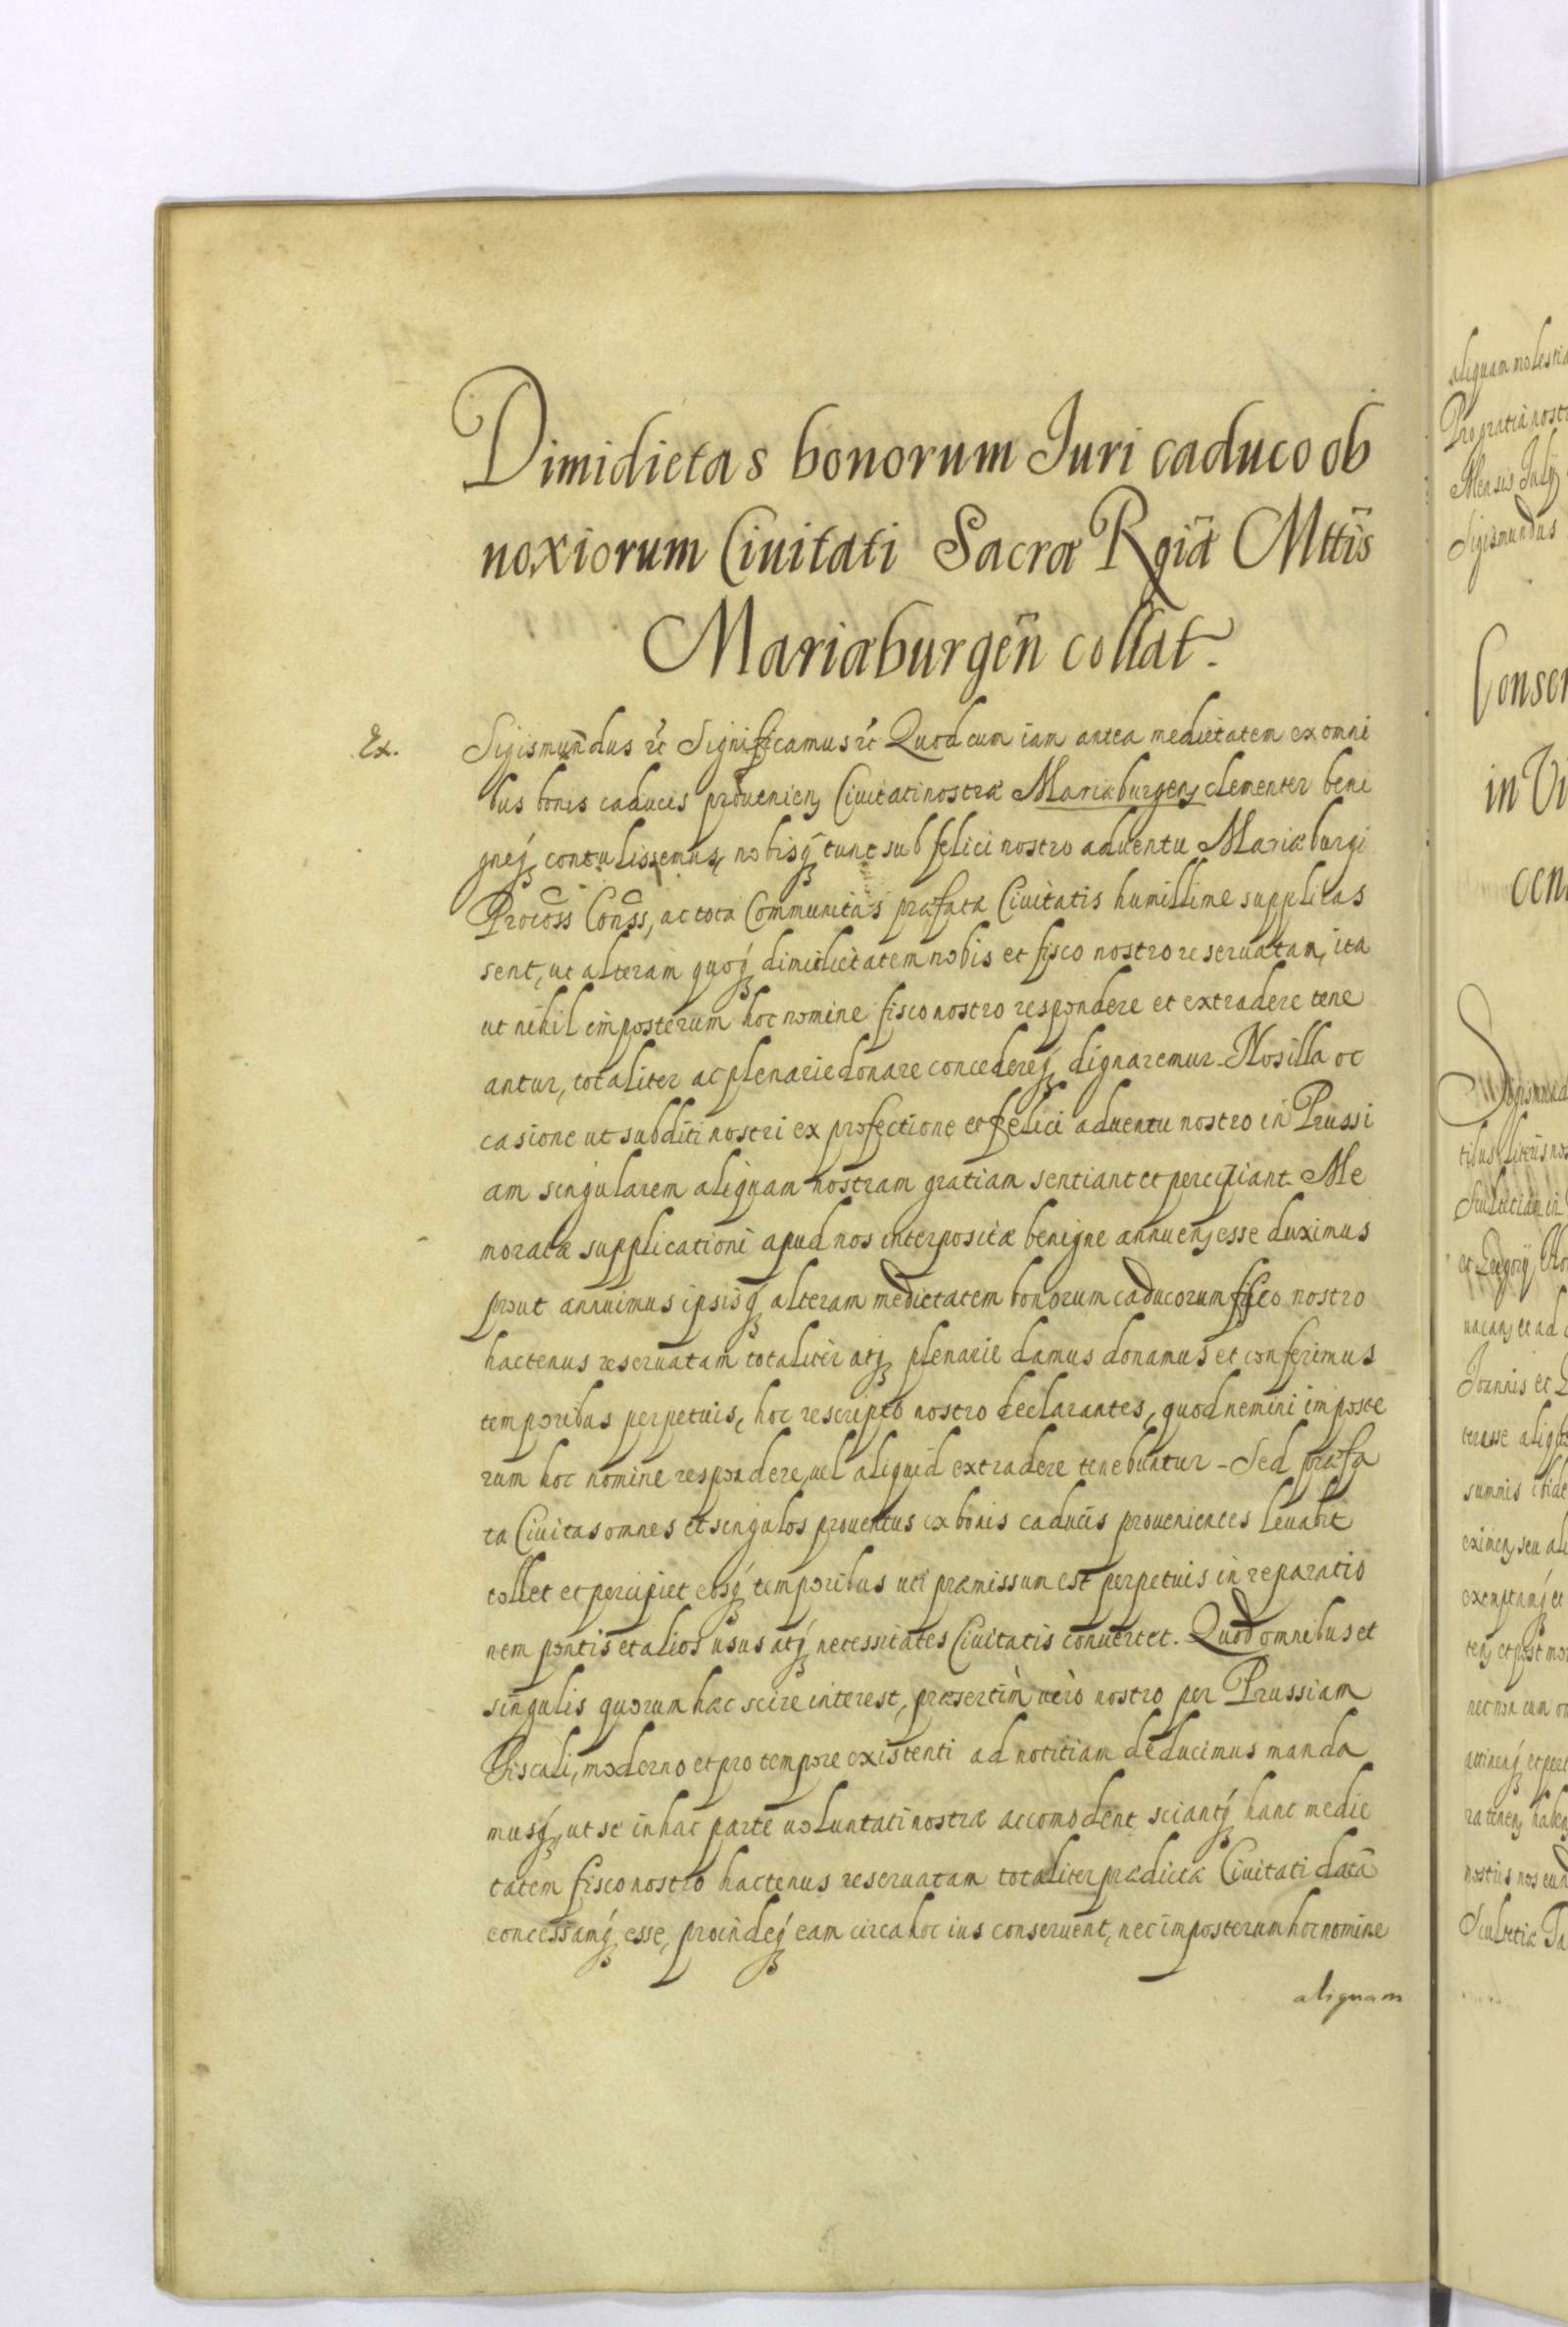 Dimidietas bonorum Iuri caduco ob
noxiorum Ciuitati Sacræ Rgiæ Mttis
Mariæburgeñ collat.
Ex.
Sigismundus etc Significamus etc Quod cum iam antea medietatem ex omni
bus bonis caducis prouenien, Ciuitati nostræ Mariæburgen, clementer beni
gneq, contulissemus, nobisq, tunc sub felici nostro aduentu Mariæburgi
Procoss Conss, ac tota Communitas præfatæ Ciuitatis humillime supplicas
sent, ut alteram quoq, dimidietatem nobis et fisco nostro reseruatam, ita
ut nihil imposterum hoc nomine fisco nostro respondere et extradere tene
antur, totaliter ac plenarie donare concedereq, dignaremur. Nos illa oc
casione ut subditi nostri ex profectione et felici aduentu nostro in Prussi
am singularem aliquam nostram gratiam sentiant et percipiant. Me
moratæ supplicationi apud nos interpositæ benigne annuen, esse duximus
prout annuimus ipsisq, alteram medietatem bonorum caducorum fisco nostro
hactenus reseruatam totaliter atq, plenarie damus donamus et conferimus
temporibus perpetuis, hoc rescripto nostro declarantes, quod nemini imposte
rum hoc nomine respondere, uel aliquid extradere tenebuntur. Sed præfa
ta Ciuitas omnes et singulos prouentus ex bonis caducis prouenientes leuabit
tollet et percipiet eosq, temporibus uti præmissum est perpetuis in reparatio
nem pontis et alios usus atq, necessitates Ciuitatis conuertet. Quod omnibus et
singulis quorum hac scire interest, præsertim uero nostro per Prussiam
Fiscali, moderno et pro tempore existenti ad notitiam deducimus manda
musq, ut se in hac parte uoluntati nostræ accomodent, sciantq, hanc medie
tatem fisco nostro hactenus reseruatam totaliter prædictæ Ciuitati datã
concessamq, esse, proindeq, eam circa hoc ius conseruent, nec imposterum hoc nomine
aliquam
aliquam molestia
Pro gratia nostr
Mensis Julij
Sigismundus
Conser
in
Joannis et
summis
eximen, seu ali
exemptamq, et
nec non cum
nostris nos
Scultetiæ